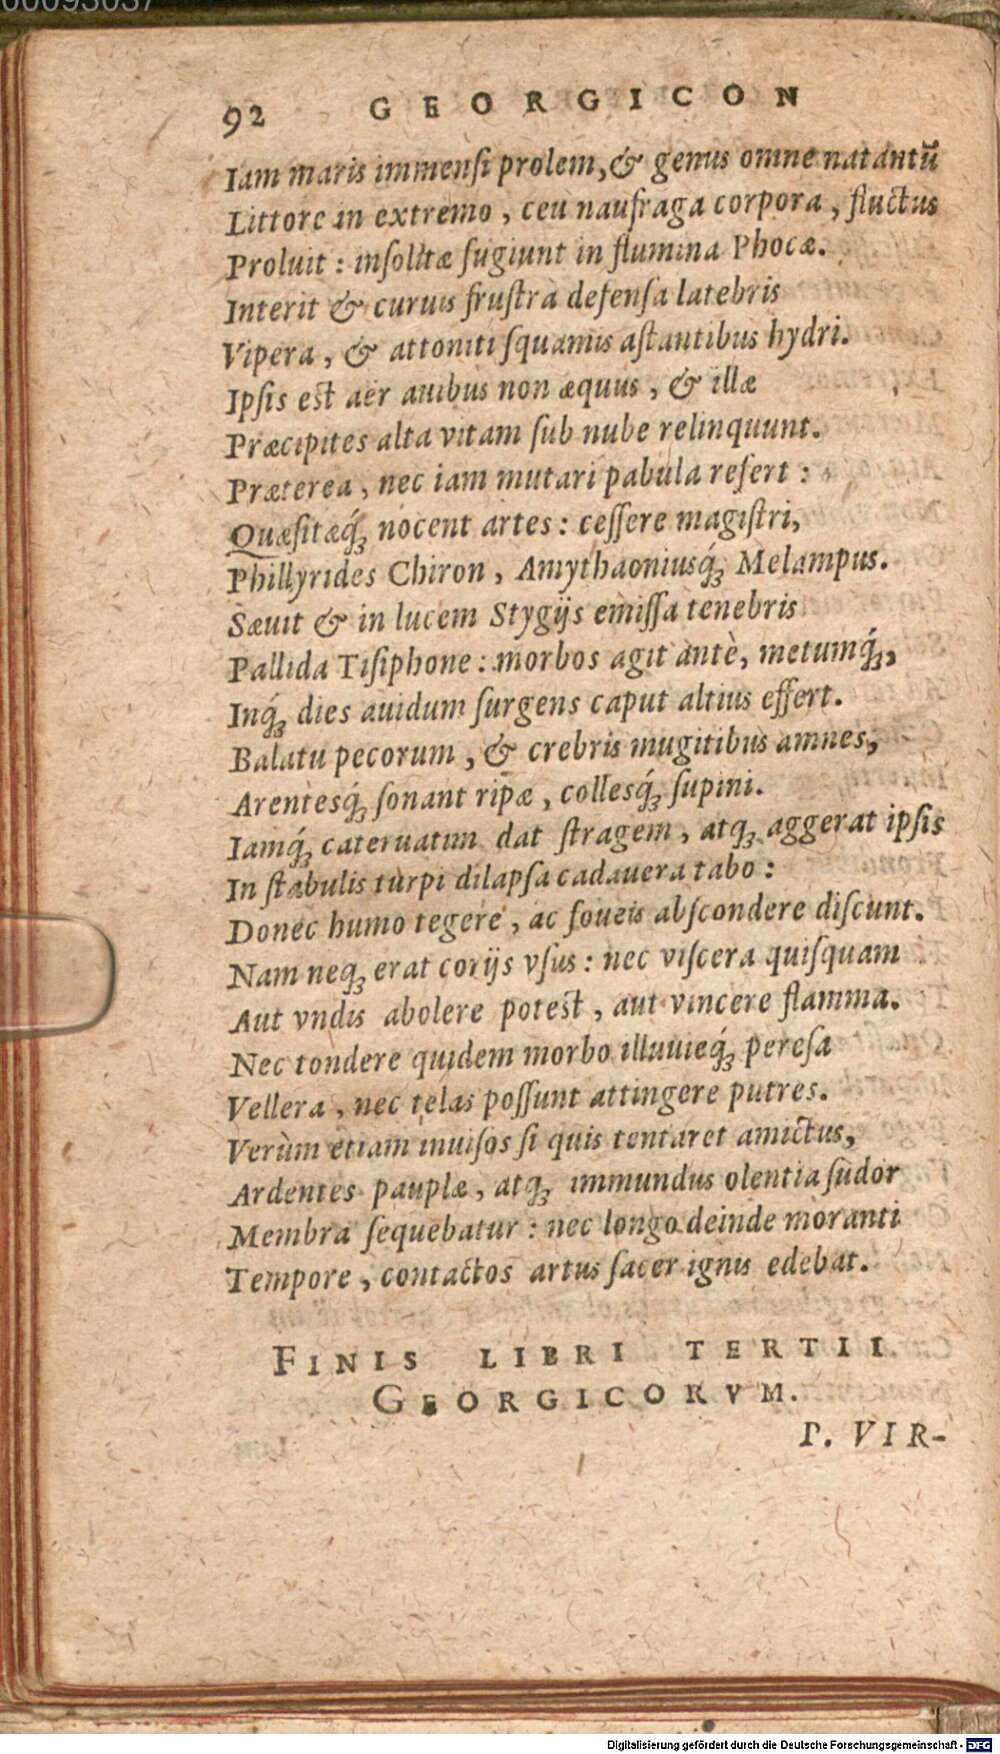 00093037
92 GEORGICON
Iam maris immensi prolem, & genus omne natantũ
Littore in extremo, ceu naufraga corpora, fluctus
Proluit: insolitæ fugiunt in flumina Phocæ.
Interit & curuis frustra defensa latebris
Vipera, & attoniti squamis astantibus hydri.
Ipsis est aër auibus non æquus, & illæ
Præcipites alta vitam sub nube relinquunt.
Præterea, nec iam mutari pabula refert:
Quæsitæq́ꝫ nocent artes: cessere magistri,
Phillyrides Chiron, Amythaoniusq́ꝫ Melampus.
Sæuit & in lucem Stygijs emissa tenebris
Pallida Tisiphone: morbos agit antè, metumq́ꝫ,
Inq́ꝫ dies auidum surgens caput altius effert.
Balatu pecorum, & crebris mugitibus amnes,
Arentesq́ꝫ sonant ripæ, collesq́ꝫ supini.
Iamq́ꝫ cateruatim dat stragem, atqꝫ aggerat ipsis
In stabulis turpi dilapsa cadauera tabo:
Donec humo tegere, ac foueis abscondere discunt.
Nam neqꝫ erat corijs vsus: nec viscera quisquam
Aut vndis abolere potest, aut vincere flamma.
Nec tondere quidem morbo illuuieq́ꝫ peresa
Vellera, nec telas possunt attingere putres.
Verùm etiam inuisos si quis tentaret amictus,
Ardentes pauplæ, atqꝫ immundus olentia sudor
Membra sequebatur: nec longo deinde moranti
Tempore, contactos artus sacer ignis edebat.
FINIS LIBRI TERTII
GEORGICORVM.
P. VIR-
Digitalisierung gefördert durch die Deutsche Forschungsgemeinschaft - DFG